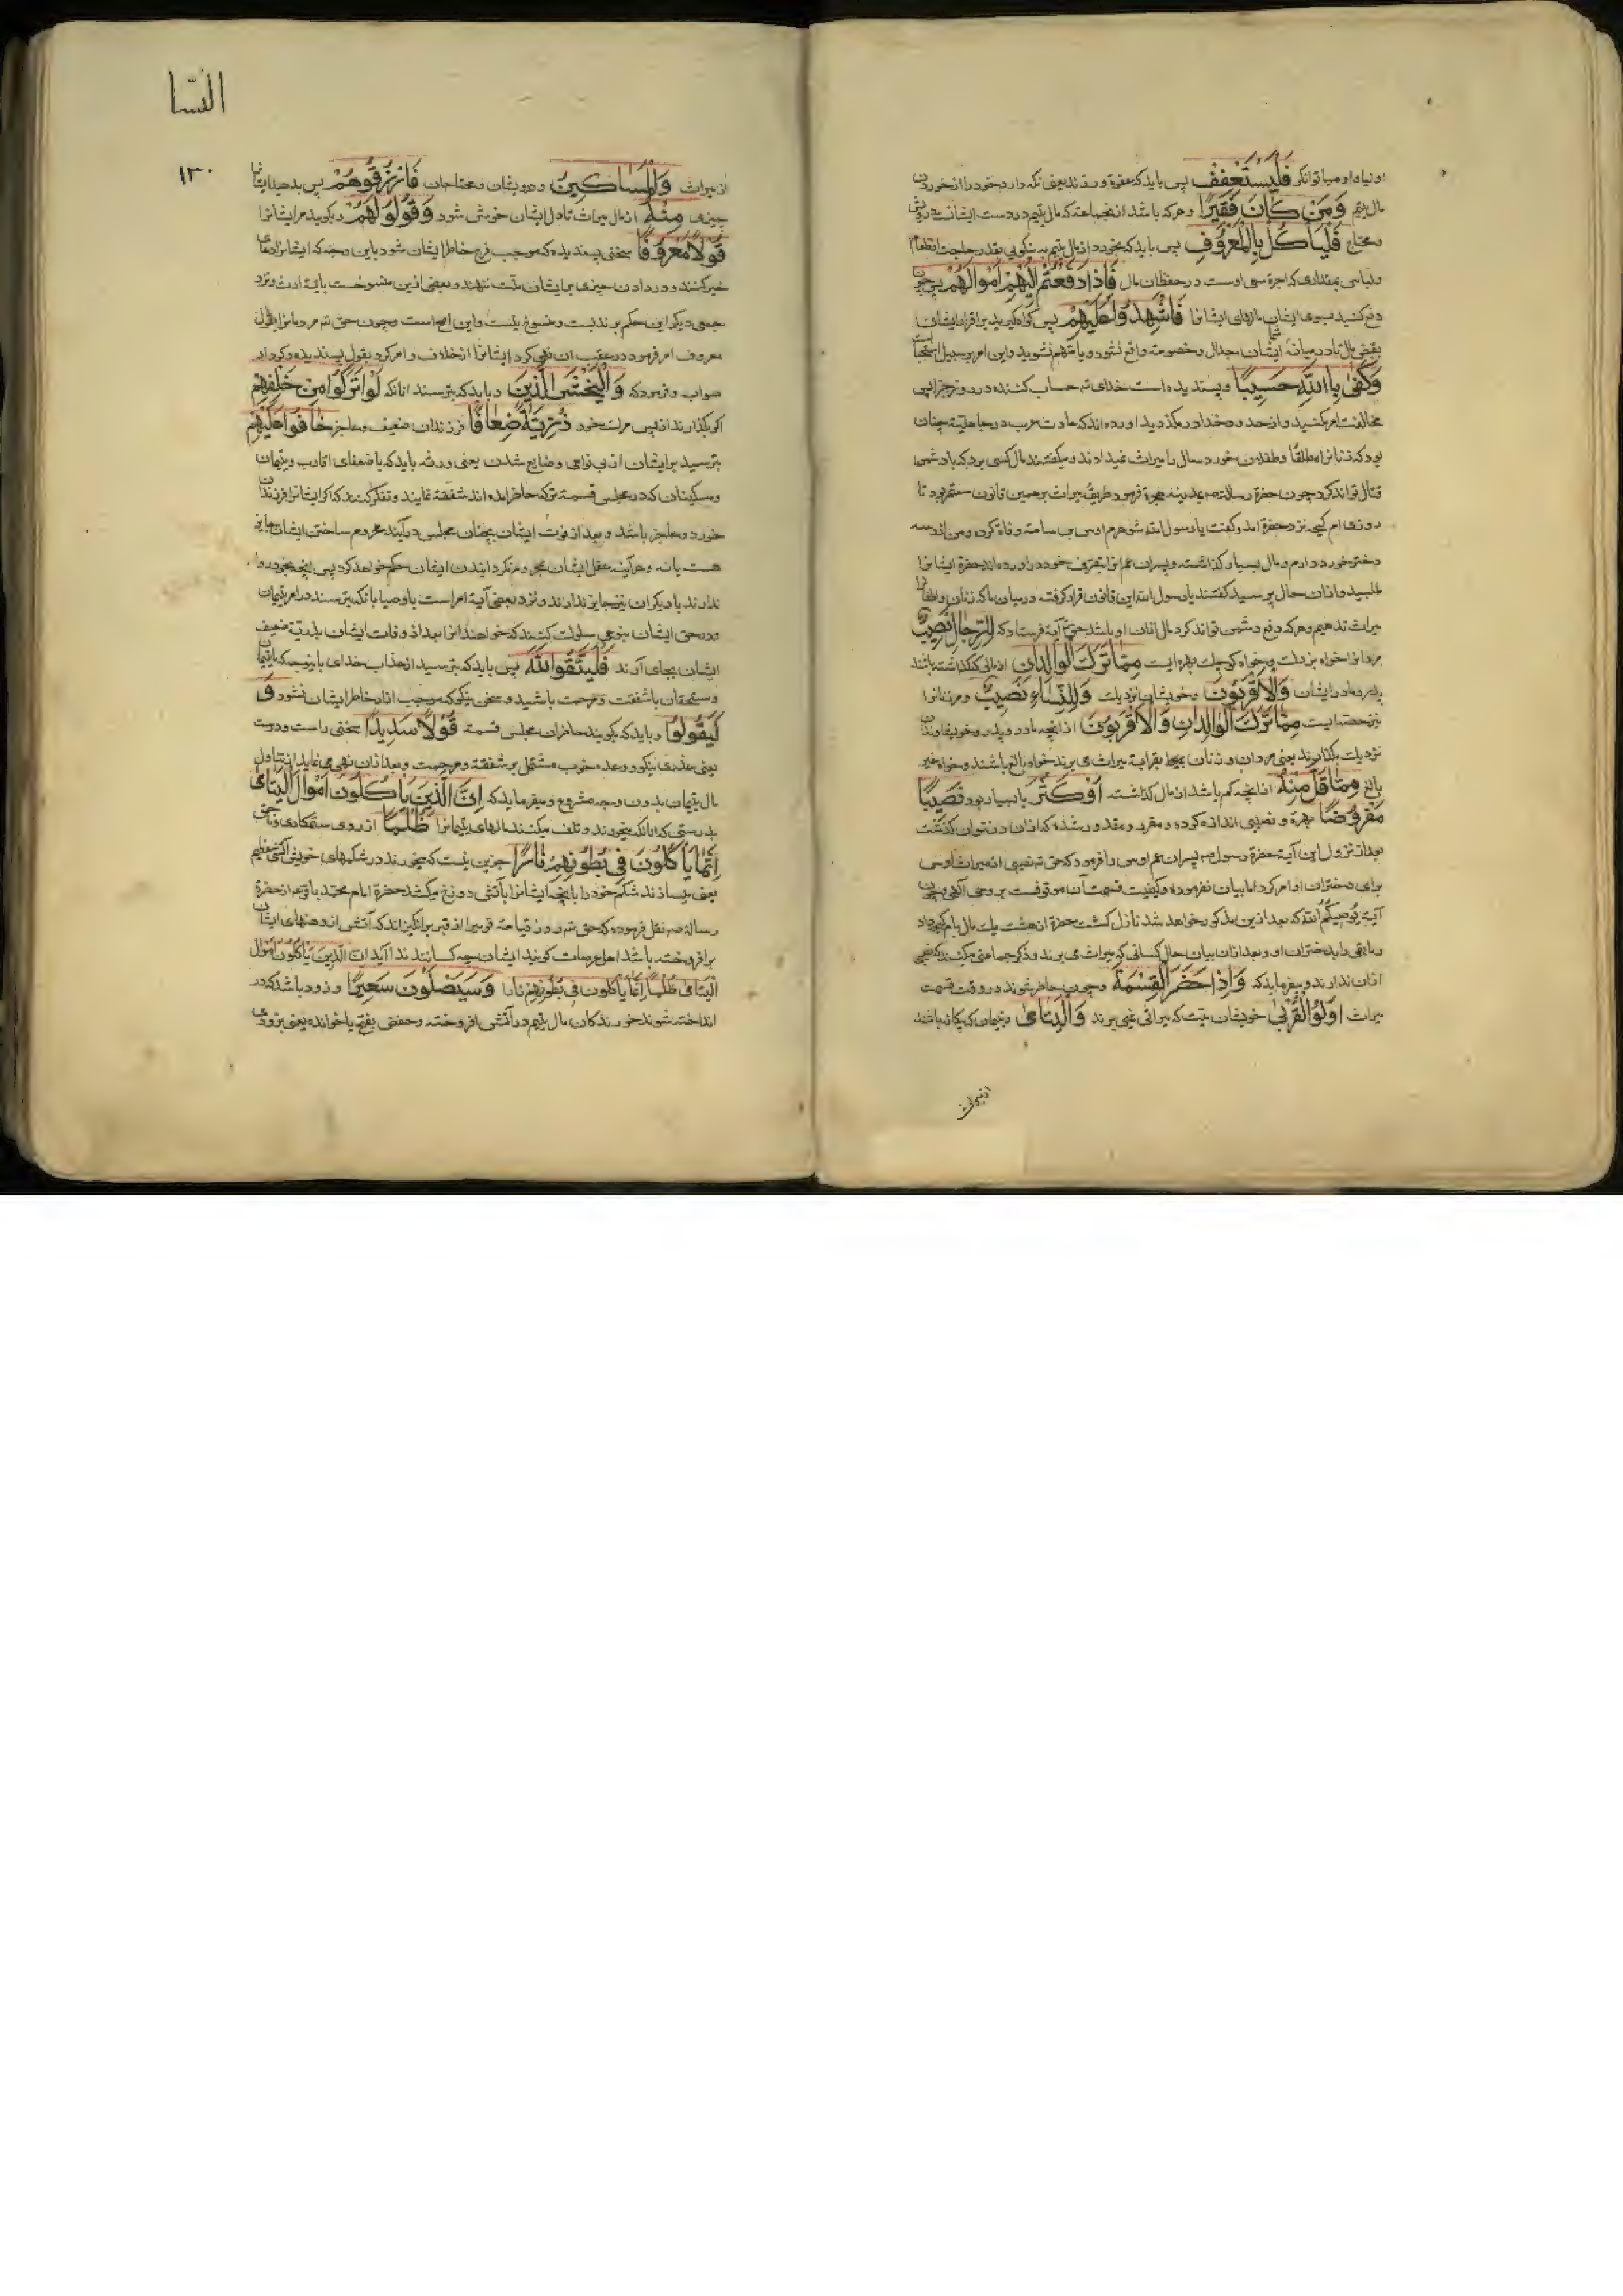 اولیا و اوصیا توانکر فَلْیَسْتَعْفِفْ پس باید که عفة ورزند یعنی نکه دارد خود را از خوردن
مال یتیم وَمَنْ کَانَ فَقِیرًا و هر که باشد از جماعتی که مال یتیم در دست ایشانست درویش
و محتاج فَلْیَأْکُلْ بِالْمَعْرُوفِ پس باید که بخورد از مال یتیم به نیکویی بقدر حاجت از طعام
و لباس بمقداری که اجرة سعی اوست در حفظ ان مال فَاِذَا دَفَعْتُمْ اِلَیْهِمْ اَمْوَالَهُمْ پس چون
دفع کنید بسوی ایشان مالهای ایشانرا فَاَشْهِدُوا عَلَیْهِمْ پس کواه کیرید بر اقرار ایشان
بقبض مال تا در میانه ایشان جدال و خصومة واقع نشود و یا متهم نشوید و این امر بر سبیل استحبا
وَکَفٰی بِاللّٰهِ حَسِیبًا و بسندیده است خدای تع حساب کننده در روز جزا پس
مخالفت امر مکنید و از حد و حد خدا در مکذرید اورده اند که عادت عرب در جاهلیة چنان
بود که زنانرا مطلقًا و طفلان خورد سال را میراث نمیدادند و میکفتند مال کسی برد که با دشمن
قتال تواند کرد چون حضرة رسالة بمدینه هجرة فرمود طریقهٔ میراث بر همین قانون مستمر بود تا
روزی ام کجه نزد حضرة امد و کفت یا رسول الله شوهرم اوس بن صامة وفاة کرده و من از و سه
دختر خورد دارم و مال بسیار کذاشته و پسران عم انرا بتصرف خود در اورده اند حضرة ایشانرا
طلبید و از ان حال پرسید کفتند یا رسول الله این قانون قرار کرفته در میان ما که زنان و اطفال را
میراث ندهیم و هر که دفع دشمن تواند کرد مال از ان او باشد حق تع آیة فرستاد که لِلرِّجَالِ نَصِیبٌ
مردانرا خواه بزرک و خواه کوچک بهره ایست مِمَّا تَرَکَ الْوَالِدَانِ از مالی که کذاشته باشند
پدر و مادر ایشان وَالْاَقْرَبُونَ و خویشان نزدیک وَلِلنِّسَاءِ نَصِیبٌ و مر زنانرا
نیز حصه ایست مِمَّا تَرَکَ الْوَالِدَانِ وَالْاَقْرَبُونَ از انچه مادر و پدر و خویشاوندان
نزدیک بکذارند یعنی مردان و زنان بجهة قرابة میراث می برند خواه بالغ باشند و خواه غیر
بالغ مِمَّا قَلَّ مِنْهُ از انچه کم باشد از مال کذاشته اَوْ کَثُرَ یا بسیار بود نَصِیبًا
مَفْرُوضًا بهرهٔ و نصیبی اندازه کرده و مقرر و مقدور شده که از ان در نتوان کذشت
بعد از نزول این آیة حضرة رسول صم پسران عم اوس را فرمود که حق تع نصیبی از میراث اوس
برای دختران او امر کرد اما بیان نفرموده و کیفیت قسمت آن موقوفست بر وحی الهی پس چون
آیة یُوصِیکُمُ الله که بعد ازین مذکور خواهد شد نازل کشت حضرة از هشت یک مال بام کجه داد
و مابقی را بدختران او و بعد از ان بیان حال کسانی که میراث می برند و ذکر جماعتی میکنند که نصیبی
از ان ندارند و میفرماید که وَاِذَا حَضَرَ الْقِسْمَةَ و چون حاضر شوند در وقت قسمت
میراث اُولُوا الْقُرْبٰی خویشان میت که میراثی نمی برند وَالْیَتَامٰی و یتیمان که بیکانه باشند
از میراث
النسا
۱۳۰
از میراث وَالْمَسَاکِینُ و درویشان و محتاجان فَارْزُقُوهُمْ پس بدهید ایشانرا
چیزی مِنْهُ از مال میراث تا دل ایشان خوش شود وَقُولُوا لَهُمْ و بکویید مر ایشانرا
قَوْلًا مَعْرُوفًا سخنی پسندیده که موجب فرح خاطر ایشان شود باین وجه که ایشانرا دعای
خیر کنند و در دادن چیزی بر ایشان منت ننهند و بعضی ازین منسوخست بایة ارث و نزد
جمعی دیکر این حکم بر ندبست و منسوخ نیست و این اصح است و چون حق تع مردمانرا بقول
معروف امر فرمود در عقب ان نهی کرد ایشانرا از خلاف و امر کرد بقول پسندیده و کردار
صواب و فرمود که وَلْیَخْشَ الَّذِینَ و باید که بترسند انانکه لَوْ تَرَکُوا مِنْ خَلْفِهِمْ
اکر بکذارند از پس مرک خود ذُرِّیَّةً ضِعَافًا فرزندان ضعیف و عاجز خَافُوا عَلَیْهِمْ
بترسید بر ایشان از بی نوایی و ضایع شدن یعنی ورثه باید که با ضعفای اقارب و یتیمان
و مسکینان که در مجلس قسمة ترکه حاضر امده اند شفقة نمایند و تفکر کنند که اکر ایشانرا فرزندان
خورد و عاجز باشد و بعد از فوت ایشان بچنان مجلس در آیند محروم ساختن ایشان جایز
هست یا نه و هر اینه عقل ایشان بمحروم نکردانیدن ایشان حکم خواهد کرد پس انچه بخود روا
ندارند با دیکران نیز جایز ندارند و نزد بعضی آیة امر است باوصیا بانکه بترسند در امر یتیمان
و در حق ایشان بنوعی سلوک کنند که خواهند انرا بعد از وفات ایشان بذریة ضعیف
ایشان بجای آرند فَلْیَتَّقُوا اللّٰهَ پس باید که بترسید از عذاب خدای باینوجه که با یتیمان
و مستحقان با شفقت و مرحمت باشید و سخن نیکو که موجب ازار خاطر ایشان نشود وَ
لْیَقُولُوا و باید که بکویند حاضران مجلس قسمة قَوْلًا سَدِیدًا سخنی راست و درست
یعنی عذری نیکو و وعده خوب مشتمل بر شفقة و مرحمت و بعد از ان نهی می نماید از تناول
مال یتیمان بدون وجه مشروع و میفرماید که اِنَّ الَّذِینَ یَأْکُلُونَ اَمْوَالَ الْیَتَامٰی
بدرستی که انانکه بخورند و تلف میکنند مالهای یتیمانرا ظُلْمًا از روی ستمکاری و ناحق
اِنَّمَا یَأْکُلُونَ فِی بُطُونِهِمْ نَارًا جز این نیست که میخورند در شکمهای خویش آتشی عظیم
یعنی پر سازند شکم خود را بانچه ایشانرا بآتش دوزخ میکشد حضرة امام محمد باقر عم از حضرة
رسالة صم نقل فرموده که حق تع روز قیامة قومیرا از قبر برانکیزاند که آتش از دهنهای ایشان
برافروخته باشد اهل عرصات کویند ایشان چه کسانند ندا آید اِنَّ الَّذِینَ یَأْکُلُونَ اَمْوَالَ
الْیَتَامٰی ظُلْمًا اِنَّمَا یَأْکُلُونَ فِی بُطُونِهِمْ نَارًا وَسَیَصْلَوْنَ سَعِیرًا و زود باشد که در
انداخته شوند خورندکان مال یتیم در آتش افروخته و حفص بفتح یا خوانده یعنی بزودی